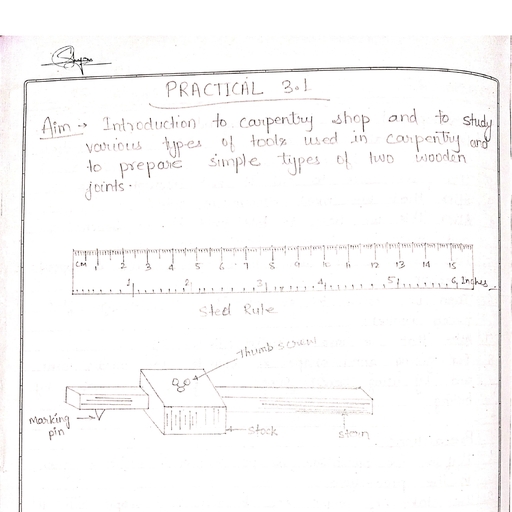 PRACTICAL 3.1
Aim → Introduction to carpentry shop and to study
various types of tools used in carpentry and
to prepare simple types of two wooden
joints.
CM 1 2 3 4 5 6 7 8 9 10 11 12 13 14 15
1 2 3 4 5 6 Inches
Steel Rule
Thumb screw
marking
pin
stock
stem